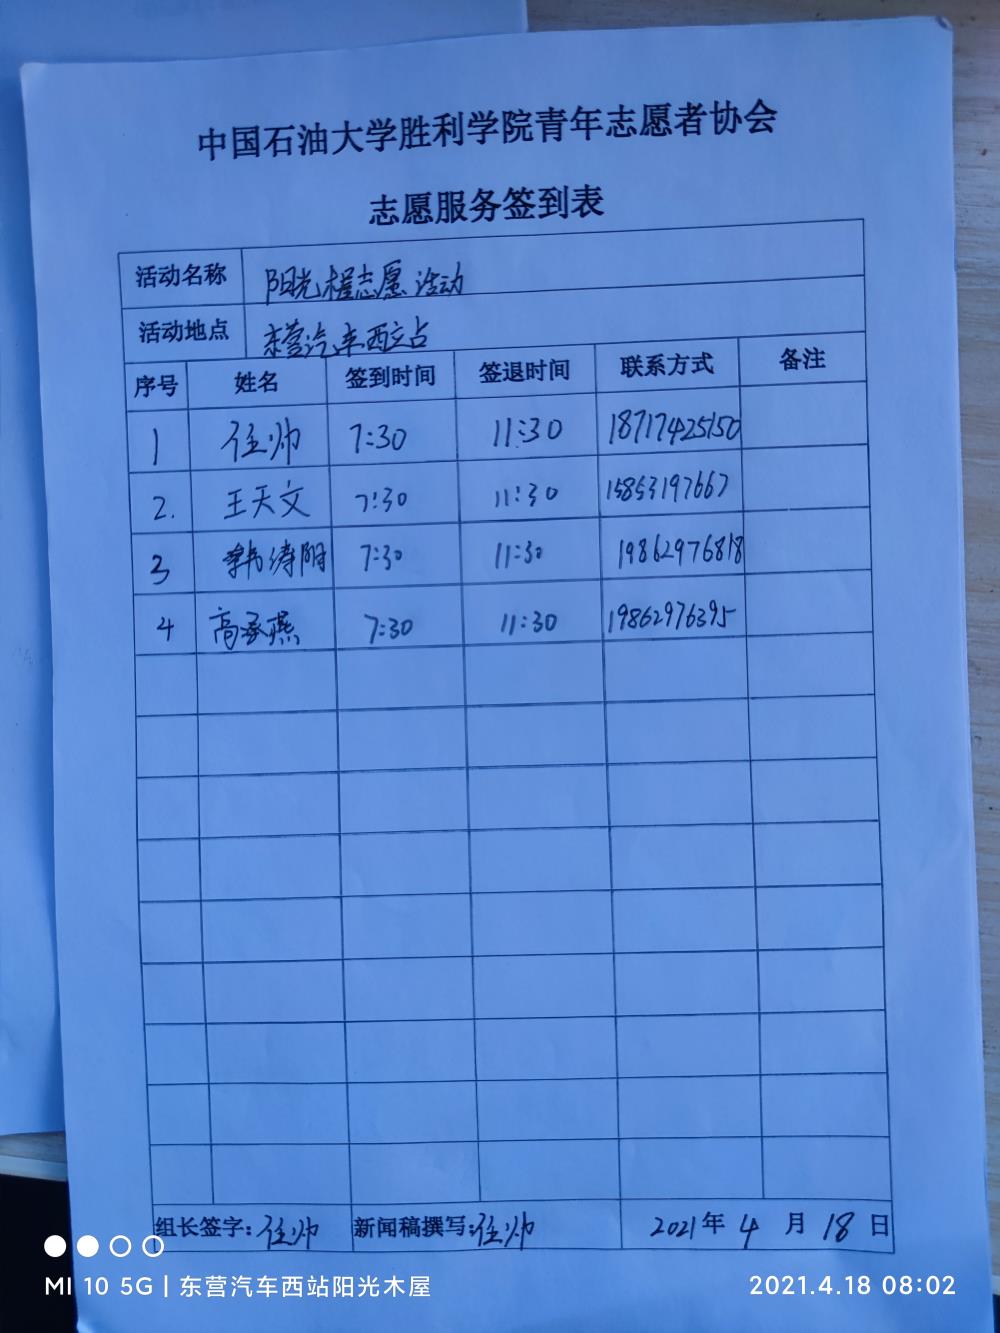 中国石油大学胜利学院青年志愿者协会
志愿服务签到表
活动名称 阳光 志愿活动
活动地点 东营汽车西站
序号 姓名 签到时间 签退时间 联系方式 备注
1 任帅 7:30 11:30 18717425150
2. 王天文 7:30 11:30 15853197667
3 韩涛阳 7:30 11:30 19862976818
4 高承燕 7:30 11:30 19862976395
组长签字: 任帅 新闻稿撰写: 任帅 2021年4月18日
MI 10 5G | 东营汽车西站阳光木屋 2021.4.18 08:02